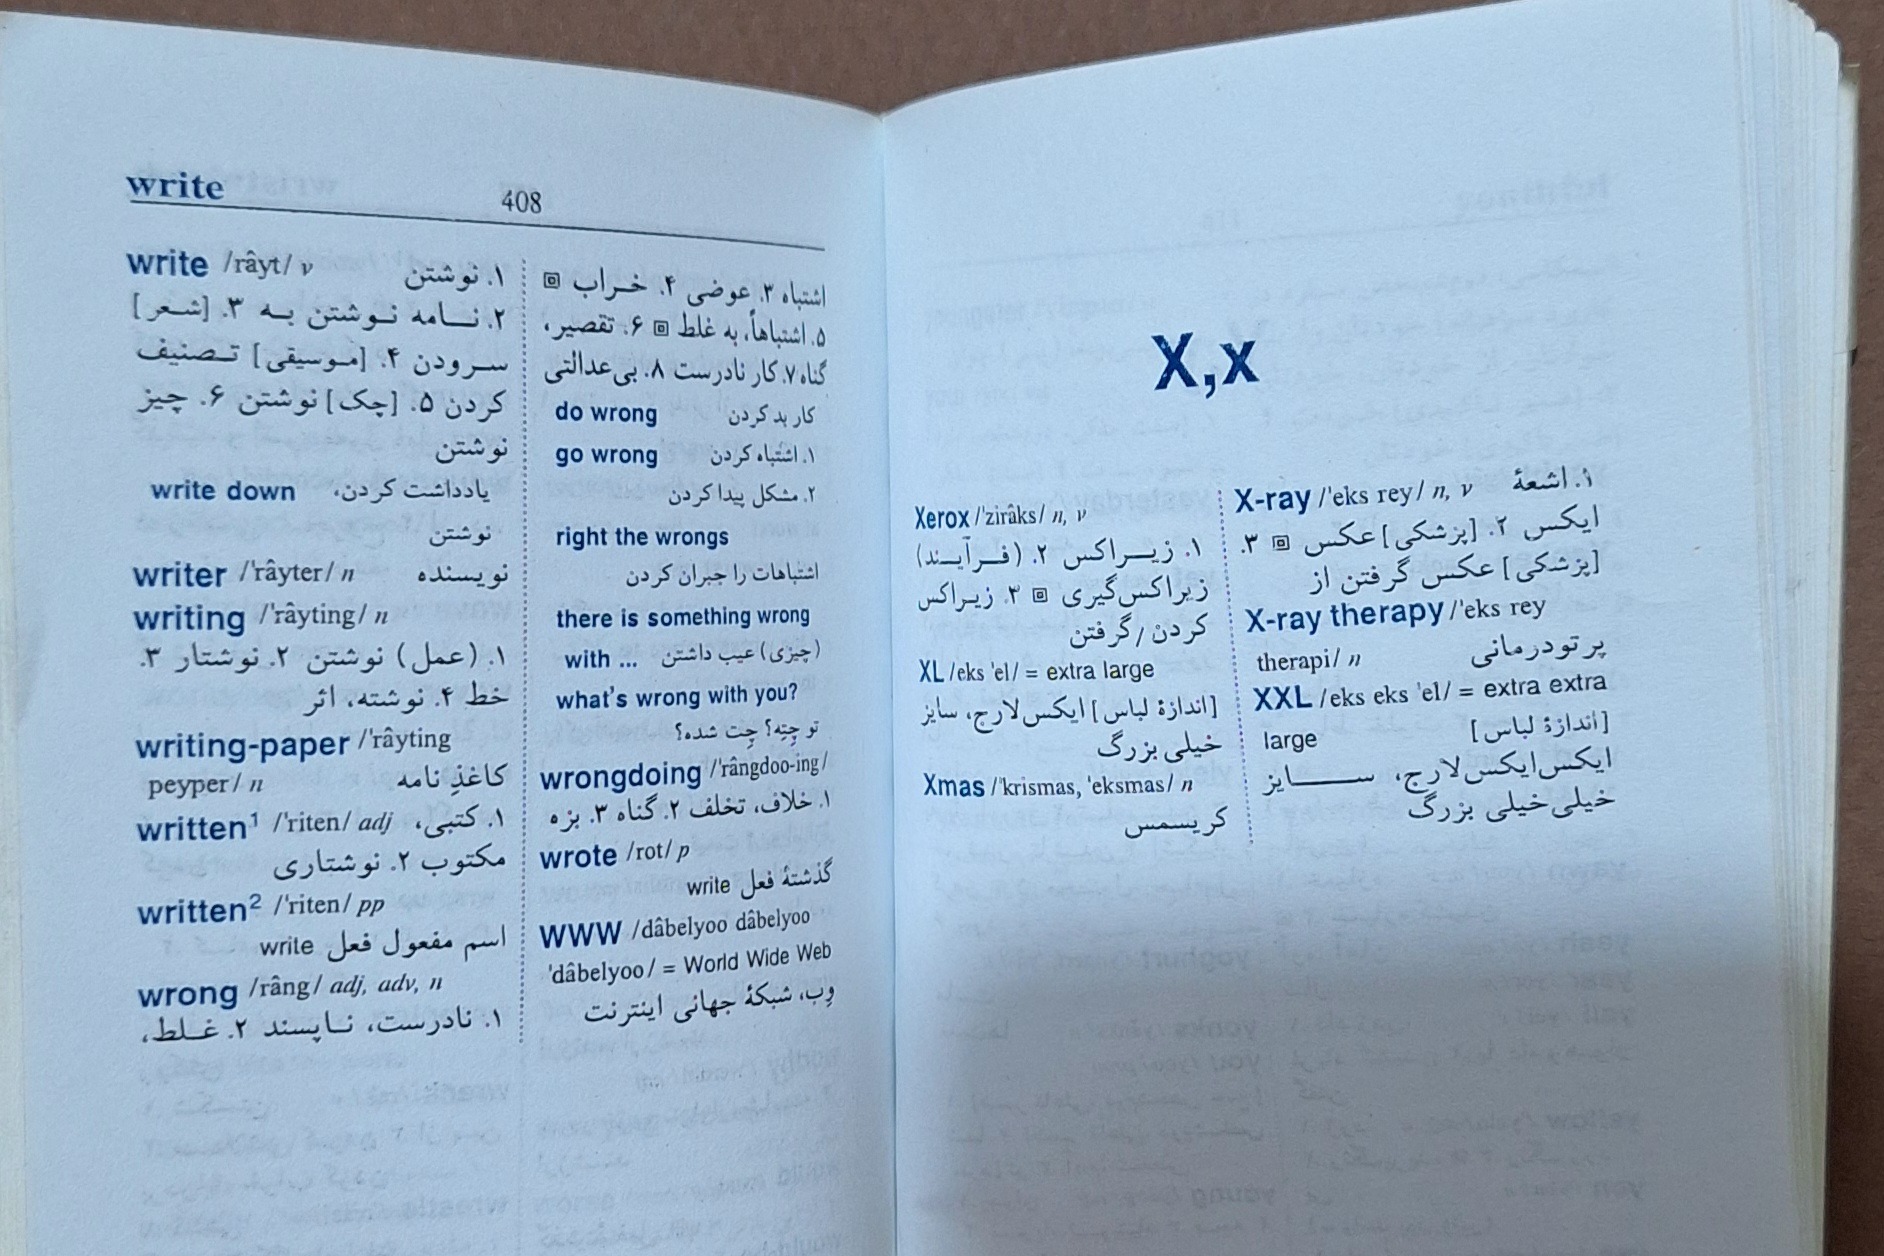 write
408
write /râyt/ v ۱. نوشتن
۲. نـامه نـوشتن بـه ۳. [شـعر]
سـرودن ۴. [مـوسیقی] تـصنیف
کردن ۵. [چک] نوشتن ۶. چیز
نوشتن
write down یادداشت کردن،
نوشتن
writer /'râyter/ n نویسنده
writing /'râyting/ n
۱. (عمل) نوشتن ۲. نوشتار ۳.
خط ۴. نوشته، اثر
writing-paper /'râyting
peyper/ n کاغذِ نامه
written¹ /'riten/ adj ۱. کتبی،
مکتوب ۲. نوشتاری
written² /'riten/ pp
اسم مفعول فعل write
wrong /râng/ adj, adv, n
۱. نادرست، نـاپسند ۲. غـلط،
اشتباه ۳. عوضی ۴. خـراب ▣
۵. اشتباهاً، به غلط ▣ ۶. تقصیر،
گناه ۷. کار نادرست ۸. بی‌عدالتی
do wrong کار بد کردن
go wrong ۱. اشتباه کردن
۲. مشکل پیدا کردن
right the wrongs
اشتباهات را جبران کردن
there is something wrong
with ... (چیزی) عیب داشتن
what's wrong with you?
تو چِته؟ چِت شده؟
wrongdoing /'rângdoo-ing/
۱. خلاف، تخلف ۲. گناه ۳. بزه
wrote /rot/ p
گذشتهٔ فعل write
WWW /dâbelyoo dâbelyoo
'dâbelyoo/ = World Wide Web
وِب، شبکهٔ جهانی اینترنت
X,x
Xerox /'zirâks/ n, v
۱. زیـراکس ۲. (فـرآیـند)
زیراکس‌گیری ▣ ۳. زیـراکس
کردن/گرفتن
XL /eks 'el/ = extra large
[اندازهٔ لباس] ایکس‌لارج، سایز
خیلی بزرگ
Xmas /'krismas, 'eksmas/ n
کریسمس
X-ray /'eks rey/ n, v ۱. اشعهٔ
ایکس ۲. [پزشکی] عکس ▣ ۳.
[پزشکی] عکس گرفتن از
X-ray therapy /'eks rey
therapi/ n پرتودرمانی
XXL /eks eks 'el/ = extra extra
large [اندازهٔ لباس]
ایکس‌ایکس‌لارج، ســـایز
خیلی‌خیلی بزرگ